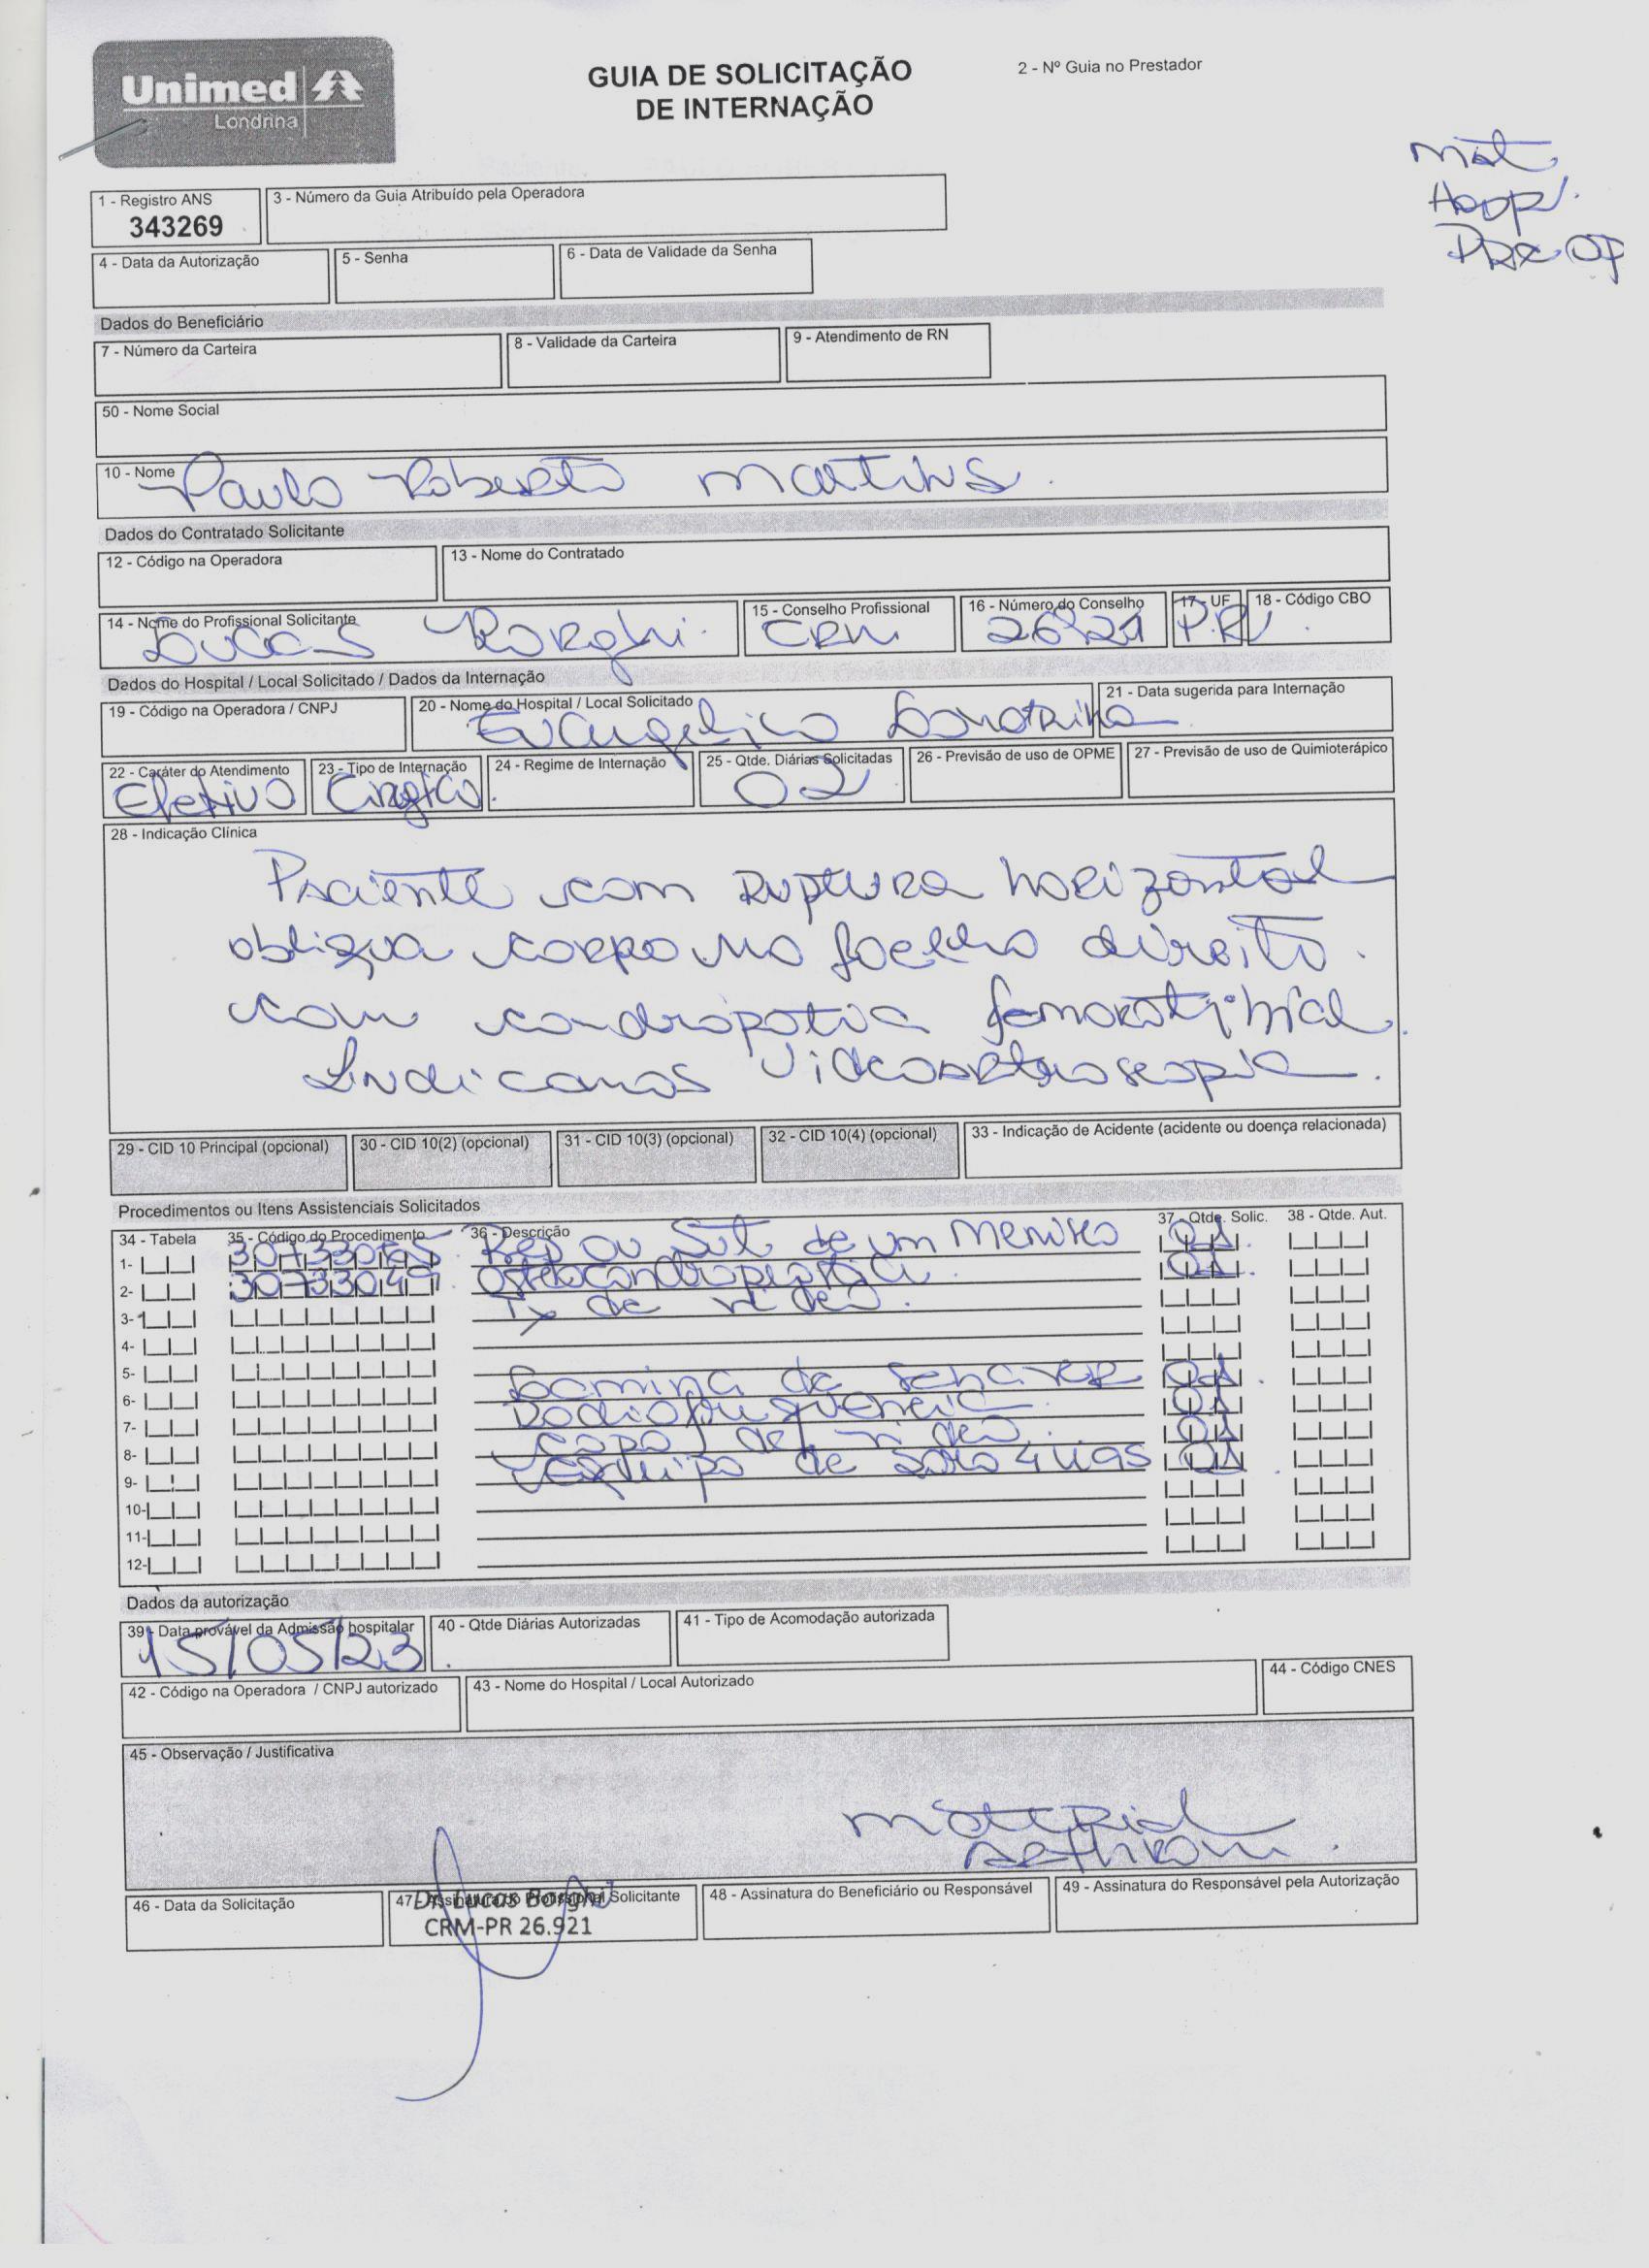 Unimed
Londrina
GUIA DE SOLICITAÇÃO
DE INTERNAÇÃO
2 - Nº Guia no Prestador
Mat
PRE OP
1 - Registro ANS
343269
3 - Número da Guia Atribuído pela Operadora
4 - Data da Autorização
5 - Senha
6 - Data de Validade da Senha
Dados do Beneficiário
7 - Número da Carteira
8 - Validade da Carteira
9 - Atendimento de RN
50 - Nome Social
10 - Nome
Paulo Roberto Martins.
Dados do Contratado Solicitante
12 - Código na Operadora
13 - Nome do Contratado
14 - Nome do Profissional Solicitante
Lucas Borghi.
15 - Conselho Profissional
CRM
16 - Número do Conselho
26921
17 - UF
PR
18 - Código CBO
Dados do Hospital / Local Solicitado / Dados da Internação
19 - Código na Operadora / CNPJ
20 - Nome do Hospital / Local Solicitado
Evangelico Londrina
21 - Data sugerida para Internação
22 - Caráter do Atendimento
Eletivo
23 - Tipo de Internação
24 - Regime de Internação
25 - Qtde. Diárias Solicitadas
02
26 - Previsão de uso de OPME
27 - Previsão de uso de Quimioterápico
28 - Indicação Clínica
Paciente com ruptura horizontal
obliqua corpo MM joelho direito.
com condropatia femorotibial.
Indicamos videoartroscopia.
29 - CID 10 Principal (opcional)
30 - CID 10(2) (opcional)
31 - CID 10(3) (opcional)
32 - CID 10(4) (opcional)
33 - Indicação de Acidente (acidente ou doença relacionada)
Procedimentos ou Itens Assistenciais Solicitados
34 - Tabela
35 - Código do Procedimento
36 - Descrição
37 - Qtde. Solic.
38 - Qtde. Aut.
1- 30733065 Rep ou Sut de um menisco 01
2- 30733049 Osteocondroplastia. 01
3- Tx de video.
4-
5-
6- Lamina de Shaver 01
7- Radiofrequencia 01
8- capa de video 01
9- equipo de soro 4 vias 01
10-
11-
12-
Dados da autorização
39 - Data provável da Admissão hospitalar
15/05/23
40 - Qtde Diárias Autorizadas
41 - Tipo de Acomodação autorizada
42 - Código na Operadora / CNPJ autorizado
43 - Nome do Hospital / Local Autorizado
44 - Código CNES
45 - Observação / Justificativa
Material
Arthrom.
46 - Data da Solicitação
47 - Assinatura do Profissional Solicitante
Dr. Lucas Borghi
CRM-PR 26.921
48 - Assinatura do Beneficiário ou Responsável
49 - Assinatura do Responsável pela Autorização